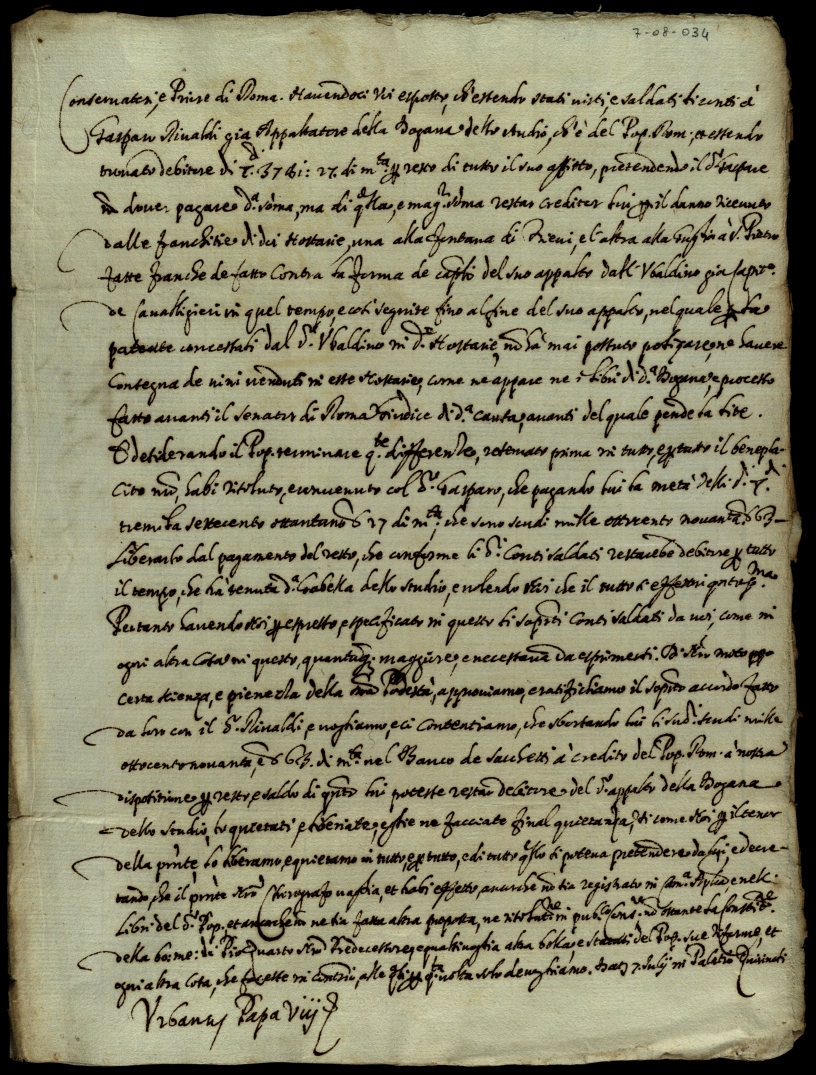 7-08-034
Conservatori, e Priore di Roma. Havendoci Voi esposto, ch'essendo stati visti, e saldati li conti à
Gasparo Rinaldi già Appaltatore della Dogana dello studio, ch'è del Pop. Rom., et essendo
trovato debitore di 3781: 27 di m.ta p resto di tutto il suo affitto, pretendendo il d.o Gaspare
dover pagare d.a soma, ma di q.lla, e mag.r soma restar creditor lui p il danno ricevuto
dalle franchitie di doi Hostarie, una alla fontana di Trevi, e l'altra alla à S. Pietro
fatte franche de fatto contra la forma de cap.li del suo appalto dall' Ubaldino già Cap.no
de Cavalligieri in quel tempo, e così seguite fino al fine del suo appalto, nel quale p la
patente concessali dal d.o Ubaldino in d.e Hostarie, nō hà mai possuto ne havere
Consegna de vini venduti in esse Hostarie, come ne appare ne i libri di d.a Dogana, e processo
fatto avanti il Senator di Roma Giudice di d.a causa, avanti del quale pende la lite.
E desiderando il Pop. terminare q.te differenze, reservato prima in tutto, e p tutto il benepla-
cito nrō, habi risoluto, e convenuto col d.o Gasparo, che pagando lui la metà delli d.i
tremila settecento ottantano 6 27 di m.ta, che sono scudi mille ottocento novanta 63 -
Liberarlo dal pagamento del resto, che conforme li d.i Conti saldati restarebe debitore p tutto
il tempo, che hà tenuta d.a Gabella dello studio, e volendo Noi che il tutto s'effettui
Pertanto havendo Noi p espresso, e specificato in questo li sop.ti Conti saldati da voi, come in
ogni altra Cosa in questo, quantunq. maggiore, e necessaria da esprimersi. Di Nrō moto pp.o
certa scienza, e pienezza della nrā Podestà, approviamo, e ratifichiamo il sop.to accordo fatto
da loro con il d.o Rinaldi, e vogliamo, e ci Contentiamo, che sborsando lui li sud.i scudi mille
ottocento novanta, e 63. di m.ta nel Banco de Sacchetti à credito del Pop. Rom. à nostra
dispositione p resto, e saldo di q.nto lui potesse restar debitore del d.o appalto della Dogana
dello Studio, lo quietati, e liberiate, e glie ne facciate final quietanza, si come Noi p il tenor
della pn̄te, lo liberamo, e quietamo in tutto, e p tutto, e di tutto q.llo si poteva pretendere da lui, e decre-
tando, che il pn̄te Nrō Chirografo vaglia, et habi effetto, ancorche nō sia registrato in Cam.a Ap.lica e nelli
Libri del d.o Pop. et ancorche nō ne sia fatta altra proposta, ne risolutione in pub.co Cons.o nō ostante la constit.ne
della bo: me: di Pio Quarto Nrō Predecessore, e qualsivoglia altra bolla, e statuti del Pop. sue riforme, et
ogni altra Cosa, che facesse in contrario, alle q.li p q.ta volta solo deroghiamo. Dat. 7. Julij in Palatio Quirinali
Urbanus Papa Viij